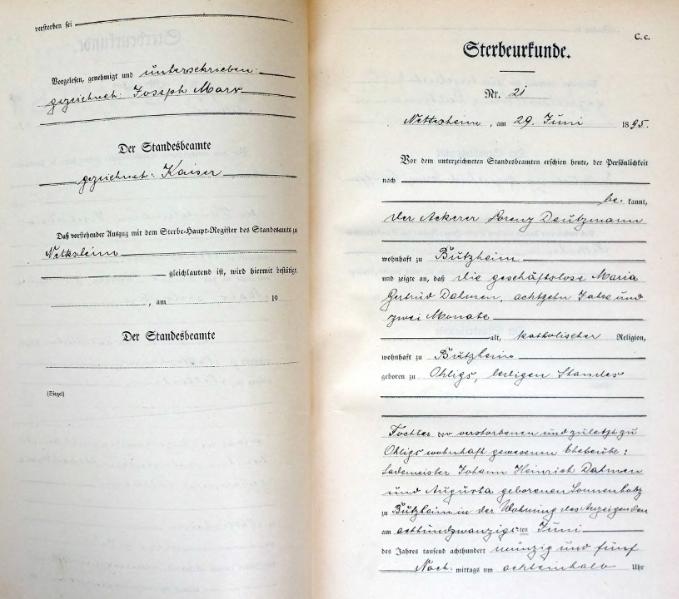 verstorben sei
Vorgelesen, genehmigt und unterschrieben:
gezeichnet: Joseph Marx
Der Standesbeamte
gezeichnet: Kaiser
Daß vorstehender Auszug mit dem Sterbe-Haupt-Register des Standesamts zu
Nettesheim
gleichlautend ist, wird hiermit bestätigt.
, am 19
Der Standesbeamte
(Siegel)
C. c.
Sterbeurkunde.
Nr. 21
Nettesheim, am 29. Juni 1895.
Vor dem unterzeichneten Standesbeamten erschien heute, der Persönlichkeit
nach
be kannt,
der Ackerer Lorenz Deutzmann
wohnhaft zu Bützheim
und zeigte an, daß die geschäftslose Maria
Gertrud Dalmen, achtzehn Jahre und
zwei Monate
alt, katholischer Religion,
wohnhaft zu Bützheim
geboren zu Ohligs, ledigen Standes
Tochter der verstorbenen und zuletzt zu
Ohligs wohnhaft gewesenen Eheleute:
Lademeister Johann Heinrich Dalmen
und Augusta geborenen
zu Bützheim in der Wohnung des Anzeigenden
am achtundzwanzigsten Juni
des Jahres tausend achthundert neunzig und fünf
Nach mittags um achteinhalb Uhr